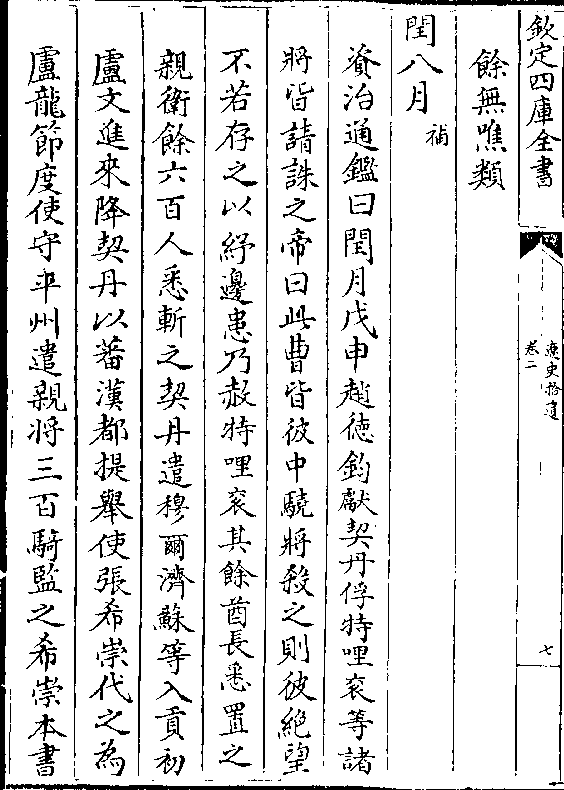 欽定四庫全書
遼史拾遺
卷二
七
餘無噍類
閏八月補
資治通鑑曰閏月戊申趙徳鈞獻契丹俘特哩衮等諸
將皆請誅之帝曰此曹皆彼中驍將殺之則彼絶望
不若存之以紓邊患乃赦特哩衮其餘酋長悉置之
親衛餘六百人悉斬之契丹遣穆爾濟蘇等入貢初
盧文進來降契丹以蕃漢都提舉使張希崇代之為
盧龍節度使守平州遣親將三百騎監之希崇本書